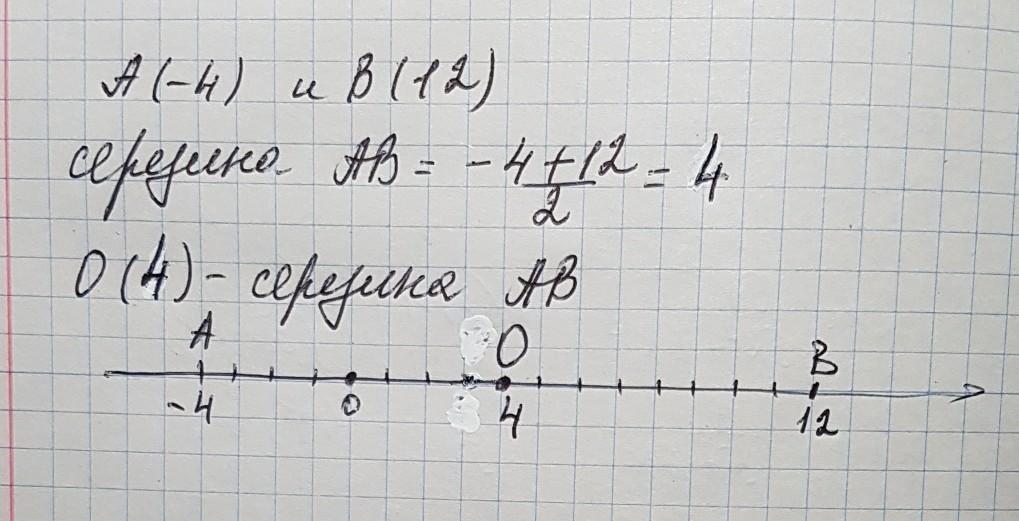 A(-4) и B(12)
середина AB = -4+12/2 = 4
O(4) - середина AB
A O B
-4 0 4 12